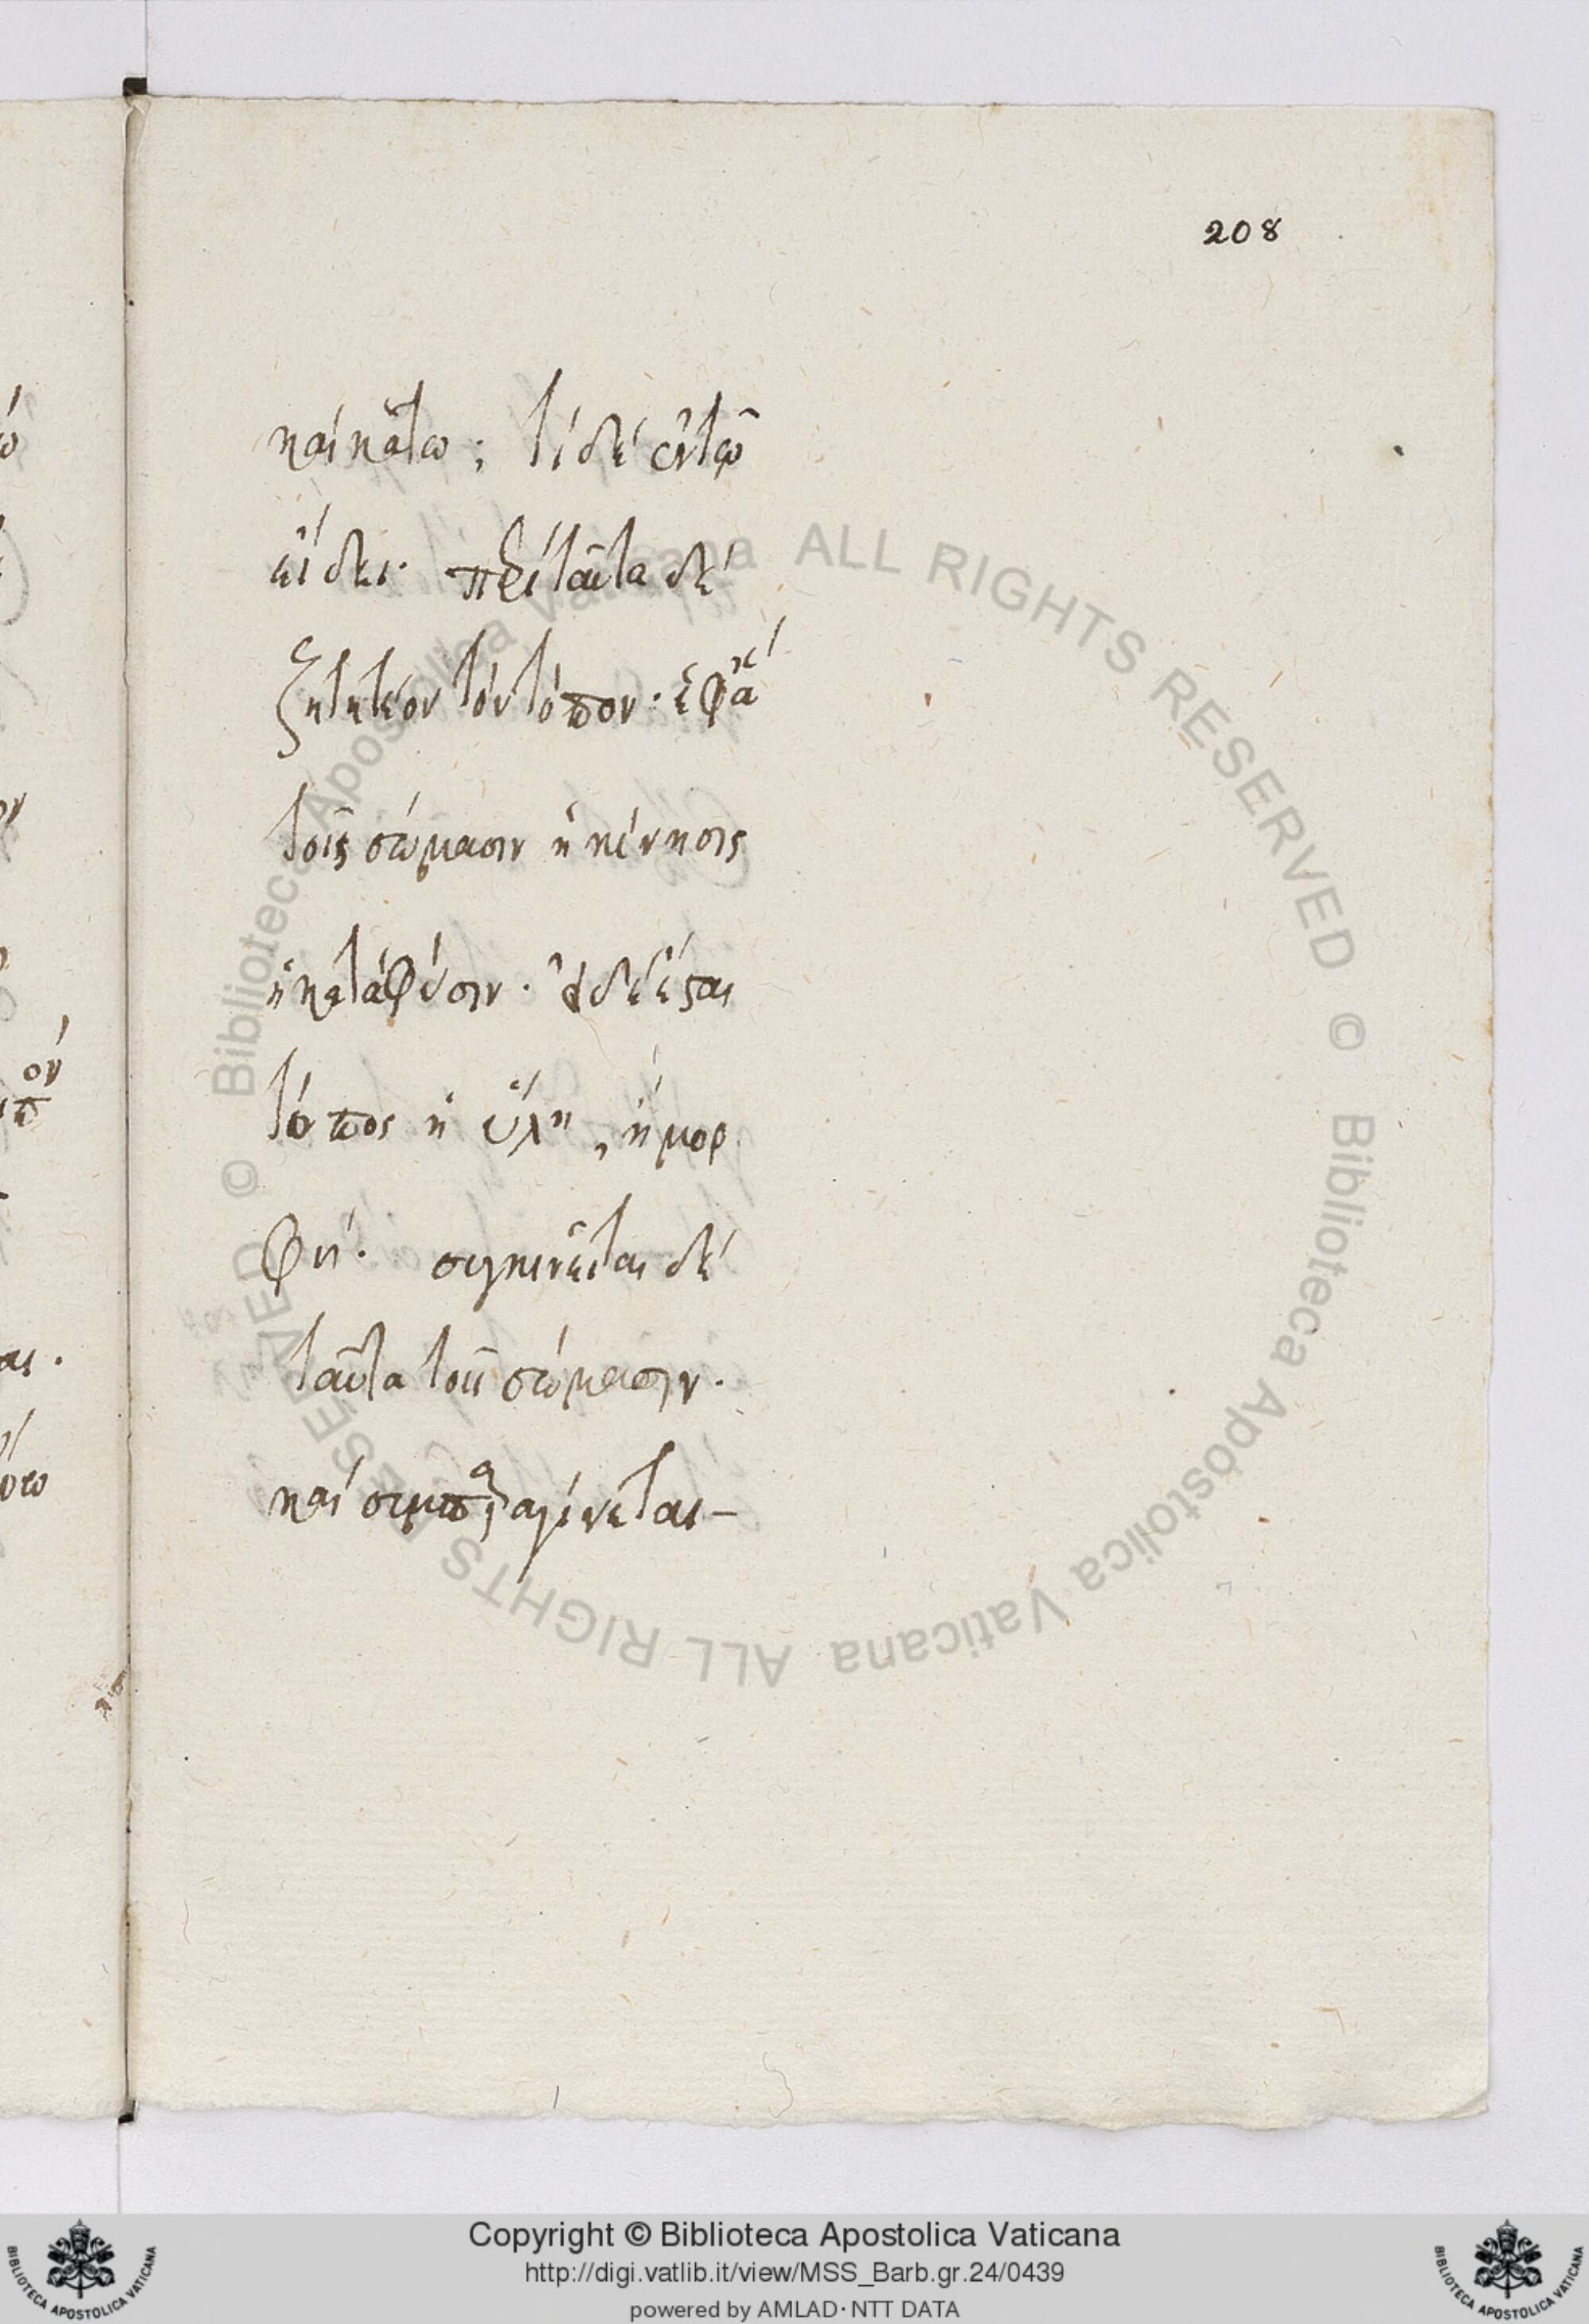 208
καὶ κάτω; τί δὲ ἐν τῶ
εἴδει. περὶ ταῦτα δὲ
ζητητέον τὸν τόπον. ἐφ' ἃ
τοῖς σώμασιν ἡ κίνησις
ἡ κατὰ φύσιν. οὐδὲ ἔσται
τόπος ἡ ὕλη, ἡ μορ
φή. συγκινεῖται δὲ
ταῦτα τοῖς σώμασιν.
καὶ συμπαραγίνεται—
© Biblioteca Apostolica Vaticana ALL RIGHTS RESERVED © Biblioteca Apostolica Vaticana ALL RIGHTS RESERVED
Copyright © Biblioteca Apostolica Vaticana
http://digi.vatlib.it/view/MSS_Barb.gr.24/0439
powered by AMLAD · NTT DATA
BIBLIOTECA APOSTOLICA VATICANA
BIBLIOTECA APOSTOLICA VATICANA